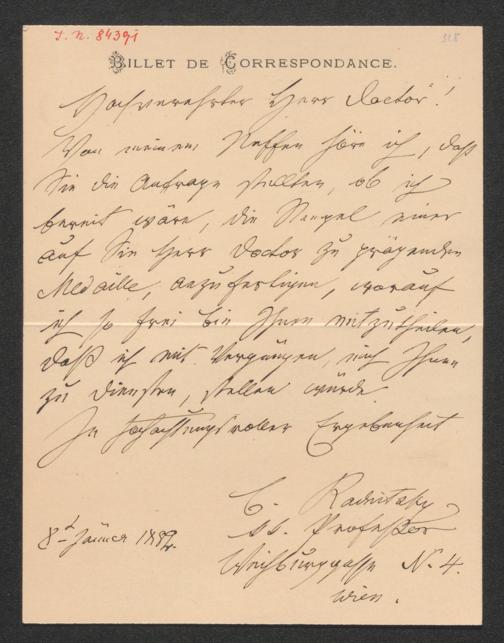 I. N. 84391
318
BILLET DE CORRESPONDANCE.
Hochverehrter Herr Doctor!
Von meinem Neffen höre ich, daß
Sie die Anfrage stellten, ob ich
bereit wäre, die Stempel einer
auf Sie Herr Doctor zu prägenden
Medaille, anzufertigen, worauf
ich so frei bin Ihnen mitzutheilen,
daß ich mit Vergnügen, mich Ihnen
zu diensten, stellen würde.
In hochachtungsvoller Ergebenheit
C. Radnitzky
k. k. Professor
8t Jänner 1892.
Weihburggasse N. 4.
Wien.